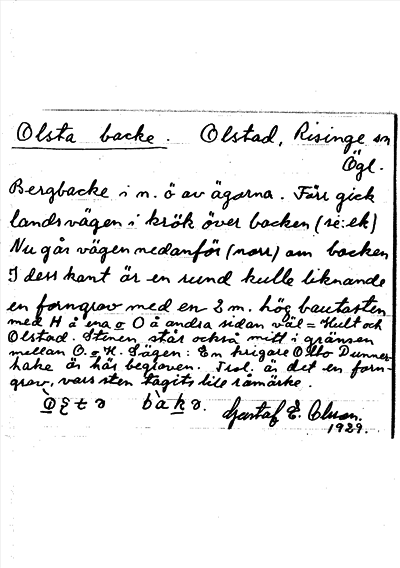 Olsta backe. Olstad, Risinge sn
Ögl.
Bergbacke i n. ö av ägorna. Förr gick
landsvägen i krök över backen (se: ek)
Nu går vägen nedanför (norr) om backen
I dess kant är en rund kulle liknande
en forngrav med en 2 m. hög bautasten
med H å ena o O å andra sidan väl = Hult och
Olstad. Stenen står också mitt i gränsen
mellan O. o H. Sägen: En krigare Otto Dunner-
hake är här begraven. Trol. är det en forn-
grav, vars sten tagits till råmärke.
Gustaf E. Olson.
1929.